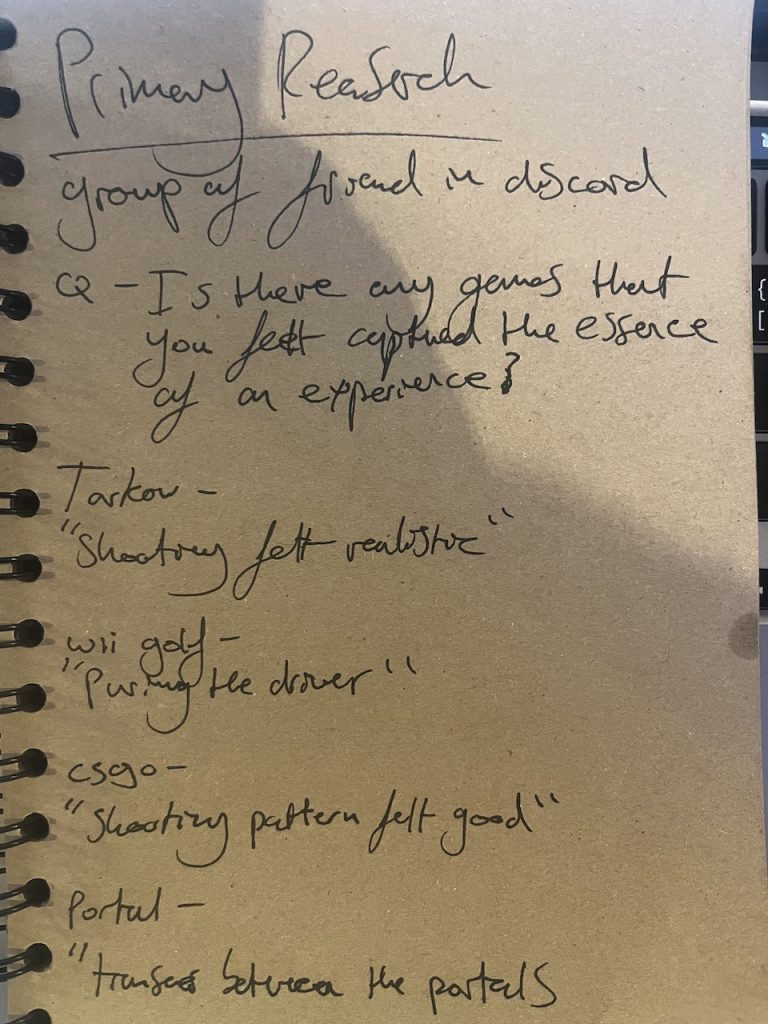 Primary Research
group of friend in discord
Q - Is there any games that
you felt captured the essence
of an experience?
Tarkov -
"Shooting felt realistic"
wii golf -
"Puring the driver"
csgo -
"Shooting pattern felt good"
Portal -
"transfer between the portals